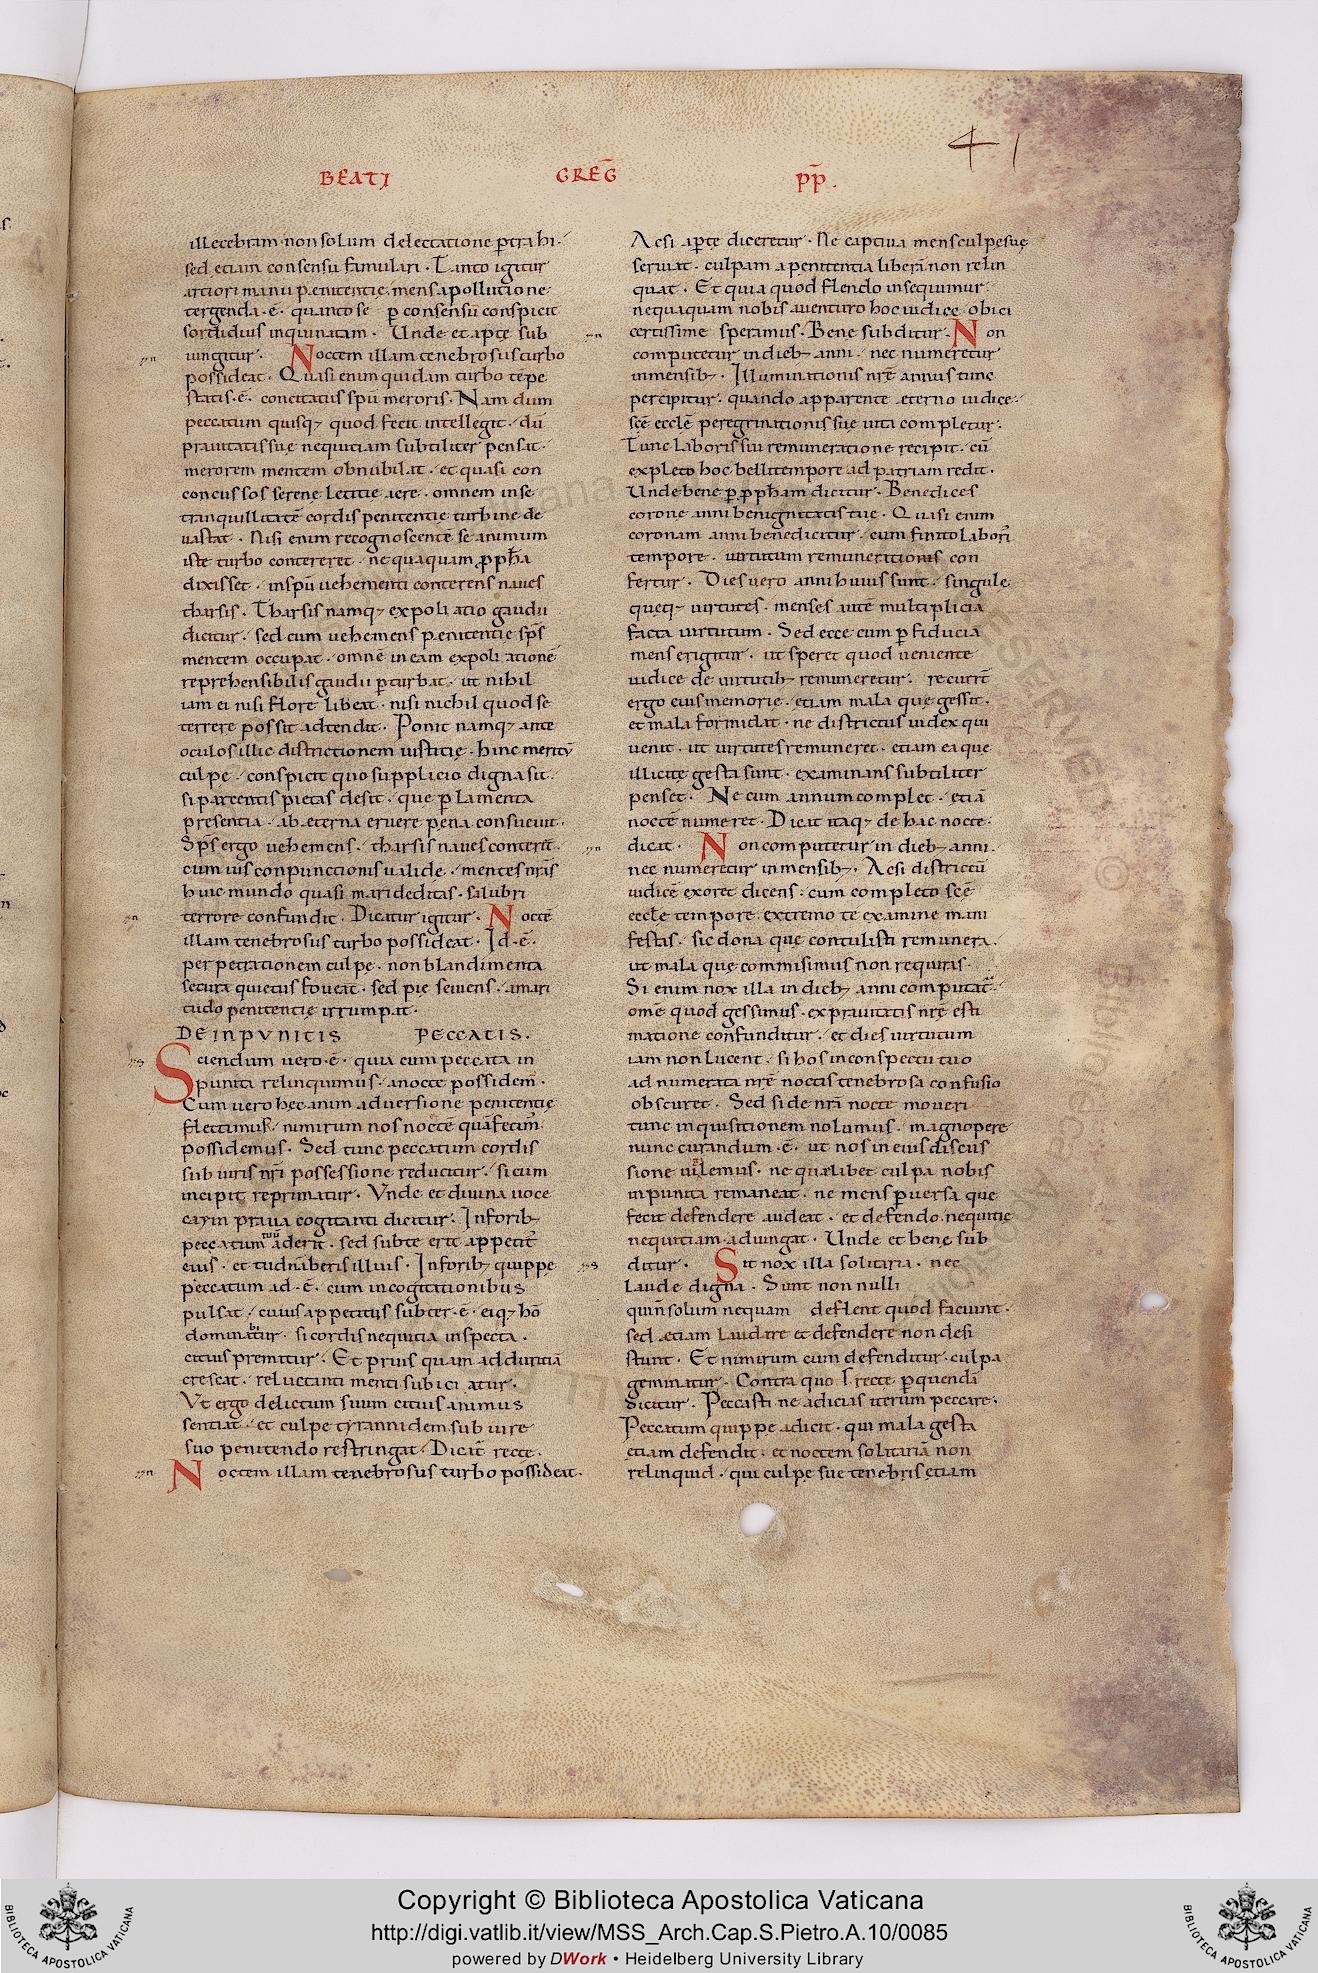 41
BEATI GREḠ PP̄.
illecebram· non solum delectatione p̄trahi·
sed etiam consensu famulari· Tanto igitur
artiori manu pęnitentię mens a pollutione
tergenda·ē· quanto se p̄ consensū conspicit
sordidius inquinatam· Unde et apte sub
iungitur· Noctem illam tenebrosus turbo
possideat· Quasi enim quidam turbo tēpe
statis·ē· concitatus spū meroris· Nam dum
peccatum quisq; quod fecit intellegit· dū
prauitatis suę nequitiam subtiliter pensat·
merorem mentem obnubilat· et quasi con
concussos serenę letitie aere· omnem in se
tranquillitatē cordis penitentię turbine de
uastat· Nisi enim recognoscentē se animum
iste turbo contereret· nequaquam ꝓph̄a
dixisset· in spū uehementi conterens naues
tharsis· Tharsis namq; expoliatio gaudii
dicitur· sed cum uehemens pęnitentie sp̄s
mentem occupat· omnē in eam expoliationē
reprehensibilis gaudii p̄turbat· ut nihil
iam ei nisi flore libeat· nisi nichil quod se
terrere possit adtendit· Ponit namq; ante
oculos illic districtionem iustitię· hinc meritū
culpę· conspicit quo supplicio digna sit·
si parcentis pietas desit· que p̄ lamenta
presentia· ab ęterna eruere pena consueuit·
Sp̄s ergo uehemens· tharsis naues conterit·
cum uis conpunctionis ualide· mentes nr̄as
huic mundo quasi mari deditas· salubri
terrore confundit· Dicatur igitur· Noctē
illam tenebrosus turbo possideat· Id·ē·
perpetrationem culpe· non blandimenta
secura quietis foueat· sed pię seuiens· amari
tudo penitentię irrumpat·
DE INPVNITIS PECCATIS.
Sciendum uero·ē· quia cum peccata in
punita relinquimus· a nocte possidem̄·
Cum uero hęc animaduersione penitentię
flectimus· nimirum nos noctē quā fecim̄·
possidemus· Sed tunc peccatum cordis
sub iuris nr̄i possessione reducitur· si cum
incipit reprimatur· Vnde et diuina uoce
cayin praua cogitanti dicitur· In forib;
peccatum tuū aderit· sed subte erit appetit̄
eius· et tu dn̄aberis illius· In forib; quippe
peccatum ad·ē· cum in cogitationibus
pulsat· cuius appetitus subter·ē· eiq; hō
dominabitur· si cordis nequitia inspecta·
citius premitur· Et prius quam ad duritiā
crescat· reluctanti menti subiciatur·
Vt ergo delictum suum citius animus
sentiat· et culpe tyrannidem sub iure
suo penitendo restringat· Dicat̄ recte·
Noctem illam tenebrosus turbo possideat·
Ac si apte diceretur· Ne captiua mens culpę suę
seruiat· culpam a penitentia liberā non relin
quat· Et quia quod flendo insequimur·
nequaquam nobis a uenturo hoc iudice obici
certissime speramus· Bene subditur· Non
computetur in dieb; anni· nec numeretur
in mensib;· Illuminationis nr̄ę annus tunc
percipitur· quando apparente ęterno iudice·
scē ecclē peregrinationis suę uita completur·
Tunc laboris sui remuneratione recipit· cū
expleto hoc belli tempore ad patriam redit·
Unde bene p̄ ꝓph̄am dicitur· Benedices
corone anni benignitatis tuę· Quasi enim
coronam anni benedicitur· cum finito labor̄
tempore· uirtutum remunerationis con
fertur· Dies uero anni huius sunt· singulę
queq; uirtutes· menses autē multiplicia
facta uirtutum· Sed ecce cum p̄ fiducia
mens erigitur· ut speret quod ueniente
iudice de uirtutib; remuneretur· recurrt̄
ergo eius memorie· etiam mala quę gessit·
et mala formidat· ne districtus iudex qui
uenit· ut uirtutes remuneret· etiam ea que
illicitę gesta sunt· examinans subtiliter
penset· Ne cum annum complet· etiā
noctē numeret· Dicat itaq; de hac nocte·
dicat· Non computetur in dieb; anni·
nec numeretur in mensib;· Ac si districtū
iudicē exoret dicens· cum completo scē
ecclē tempore extremo te examine mani
festas· sic dona que contulisti remunera·
ut mala quę commisimus non requiras·
Si enim nox illa in dieb; anni computat̄·
omē quod gessimus· ex prauitatis nr̄ę esti
matione confunditur· et dies uirtutum
iam non lucent· si hos in conspectu tuo
adnumerata nr̄ę noctis tenebrosa confusio
obscuret· Sed si de nr̄a nocte moueri
tunc inquisitionem nolumus· magnopere
nunc curandum·ē· ut nos in eius discus
sione uilemus· ne quælibet culpa nobis
inpunita remaneat· ne mens p̄uersa que
fecit defendere audeat· et defendo nequitię
nequitiam adiungat· Unde et bene sub
ditur· Sit nox illa solitaria· nec
laude digna· Sunt non nulli
qui n̄ solum nequam deflent quod faciunt·
sed etiam laudare et defendere non desi
stunt· Et nimirum cum defenditur culpa
geminatur· Contra quo recte p̄ quendā
dicitur· Peccasti ne adicias iterum peccare·
Peccatum quippe adicit· qui mala gesta
etiam defendit· et noctem solitariā non
relinquid· qui culpę sue tenebris etiam
Copyright © Biblioteca Apostolica Vaticana
http://digi.vatlib.it/view/MSS_Arch.Cap.S.Pietro.A.10/0085
powered by DWork • Heidelberg University Library
BIBLIOTECA APOSTOLICA VATICANA
BIBLIOTECA APOSTOLICA VATICANA